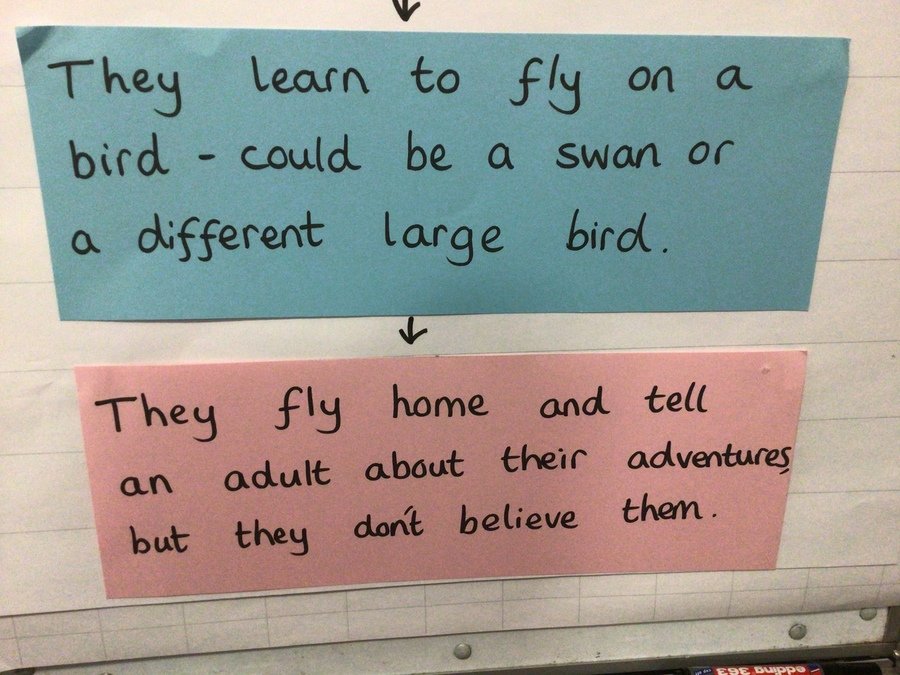 They learn to fly on a
bird - could be a swan or
a different large bird.
They fly home and tell
an adult about their adventures,
but they don't believe them.
edding 363